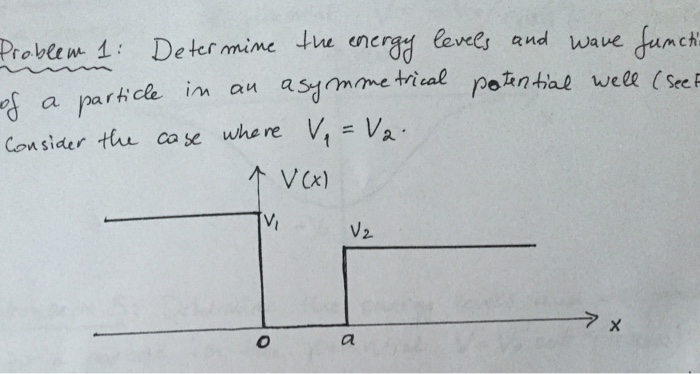 Problem 1: Determine the energy levels and wave functi
of a particle in an asymmetrical potential well (see F
Consider the case where V₁ = V₂.
V(x)
V₁
V₂
x
0 a